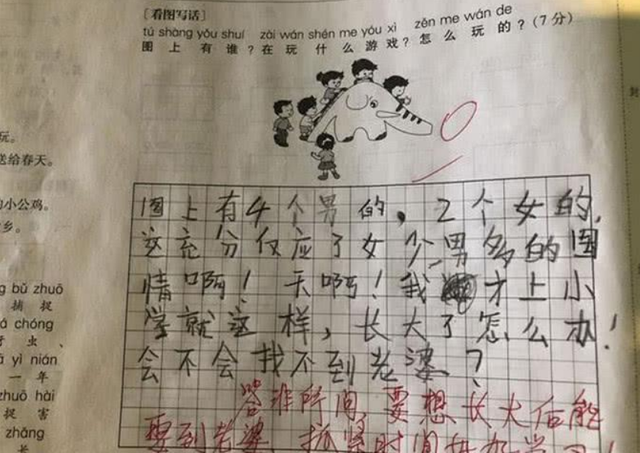 [看图写话]
tú shàng yǒu shuí zài wán shén me yóu xì zěn me wán de
图上有谁?在玩什么游戏?怎么玩的?(7分)
玩。
送给春天。
的小公鸡。
乡。
bǔ zhuō
捕捉
chóng
虫、
yì nián
一年
hài
捉害
zhǎng
长
图上有4个男的,2个女的,
这充分仅应了女少男多的国
情啊!天啊!我才上小
学就这样,长大了怎么办!
会不会找不到老婆?
答非所问,要想长大后能
要到老婆,抓紧时间